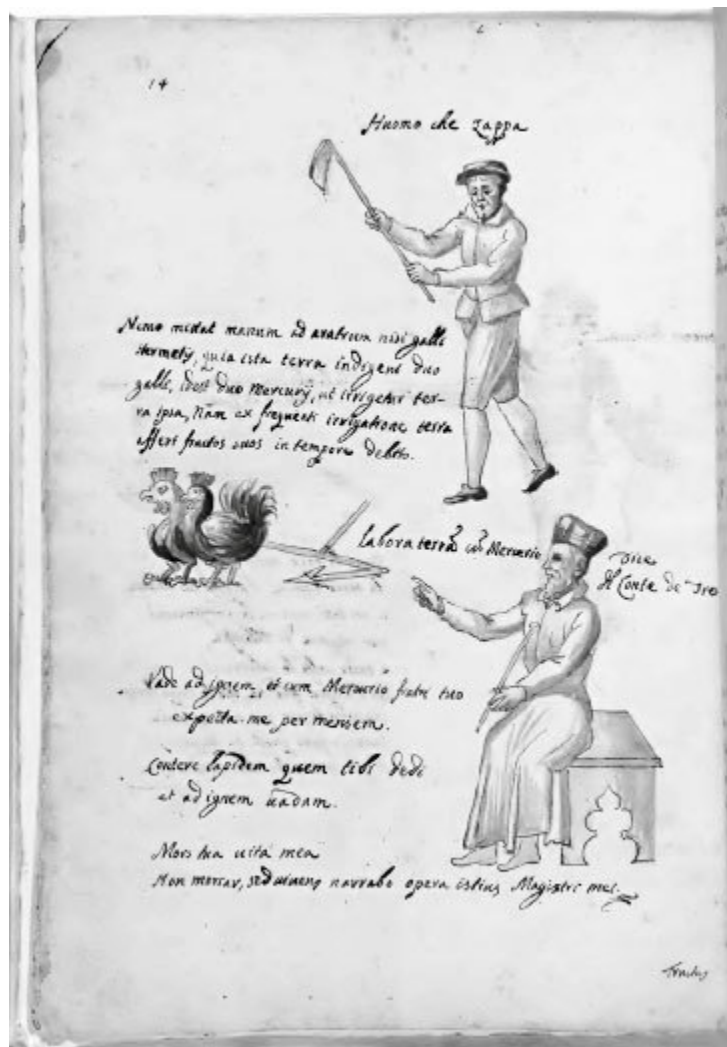 14
Huomo che zappa
Nemo mittat manum ad aratrum nisi galli
Hermetis, quia ista terra indiget duo
galli, idest duo Mercurij, ut irrigetur ter-
ra ipsa, Nam ex frequenti irrigatione terra
affert fructos suos in tempore debito.
labora terrã cũ Mercurio
dice
il Conte de
Vade ad ignem, et cum Mercurio fratri tuo
expecta me per mensem.
Contere lapidem quem tibi dedi
et ad ignem uadam.
Mors tua uita mea
Non moriar, sed uiuens narrabo opera istius Magistri mei.